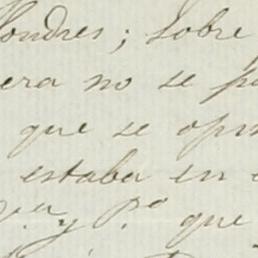 Londres; sobre
era no se
que se
estaba en
y P.º que